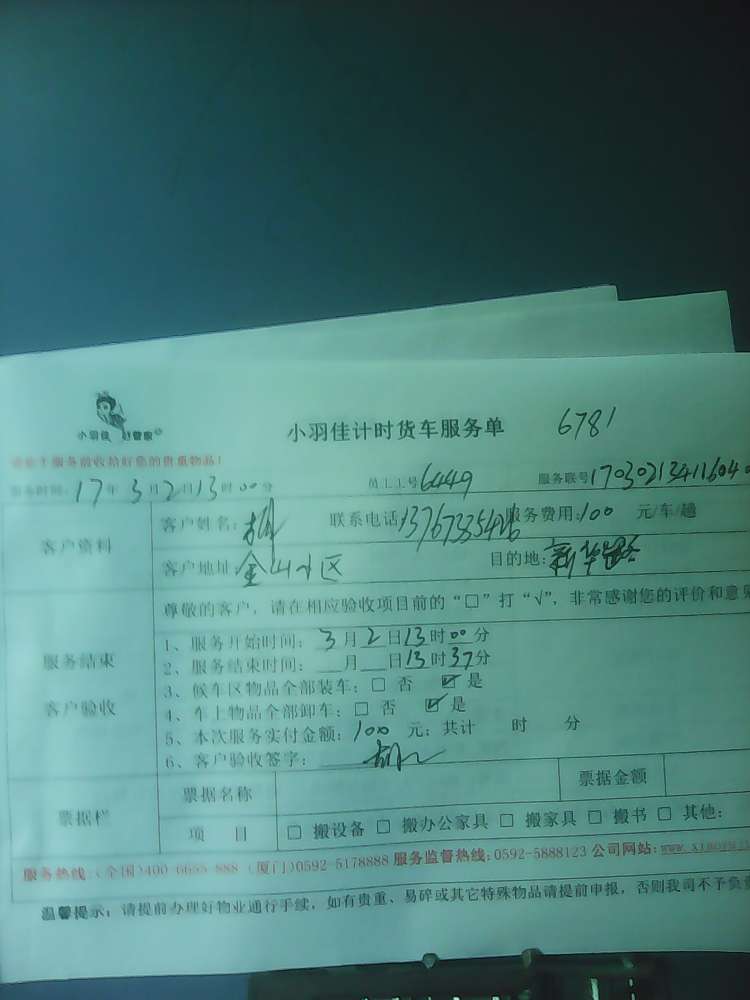 小羽佳 好管家
小羽佳计时货车服务单 6781
服务前收拾好您的贵重物品!
服务时间: 17年3月2日13时00分 员工工号6449 服务联号170302134116040
客户资料
客户姓名: 联系电话: 服务费用:100 元/车/趟
客户地址:金山小区 目的地:新华路
尊敬的客户,请在相应验收项目前的“□”打“√”,非常感谢您的评价和意见
服务结束
客户验收
1、服务开始时间: 3月2日13时00分
2、服务结束时间: 月 日13时37分
3、候车区物品全部装车: □ 否 ☑ 是
4、车上物品全部卸车: □ 否 ☑ 是
5、本次服务实付金额: 100 元; 共计 时 分
6、客户验收签字:
票据栏
票据名称 票据金额
项 目 □ 搬设备 □ 搬办公家具 □ 搬家具 □ 搬书 □ 其他:
服务热线:(全国)400-6655-888 (厦门)0592-5178888 服务监督热线:0592-5888123 公司网站:
温馨提示: 请提前办理好物业通行手续, 如有贵重、易碎或其它特殊物品请提前申报, 否则我司不予负责